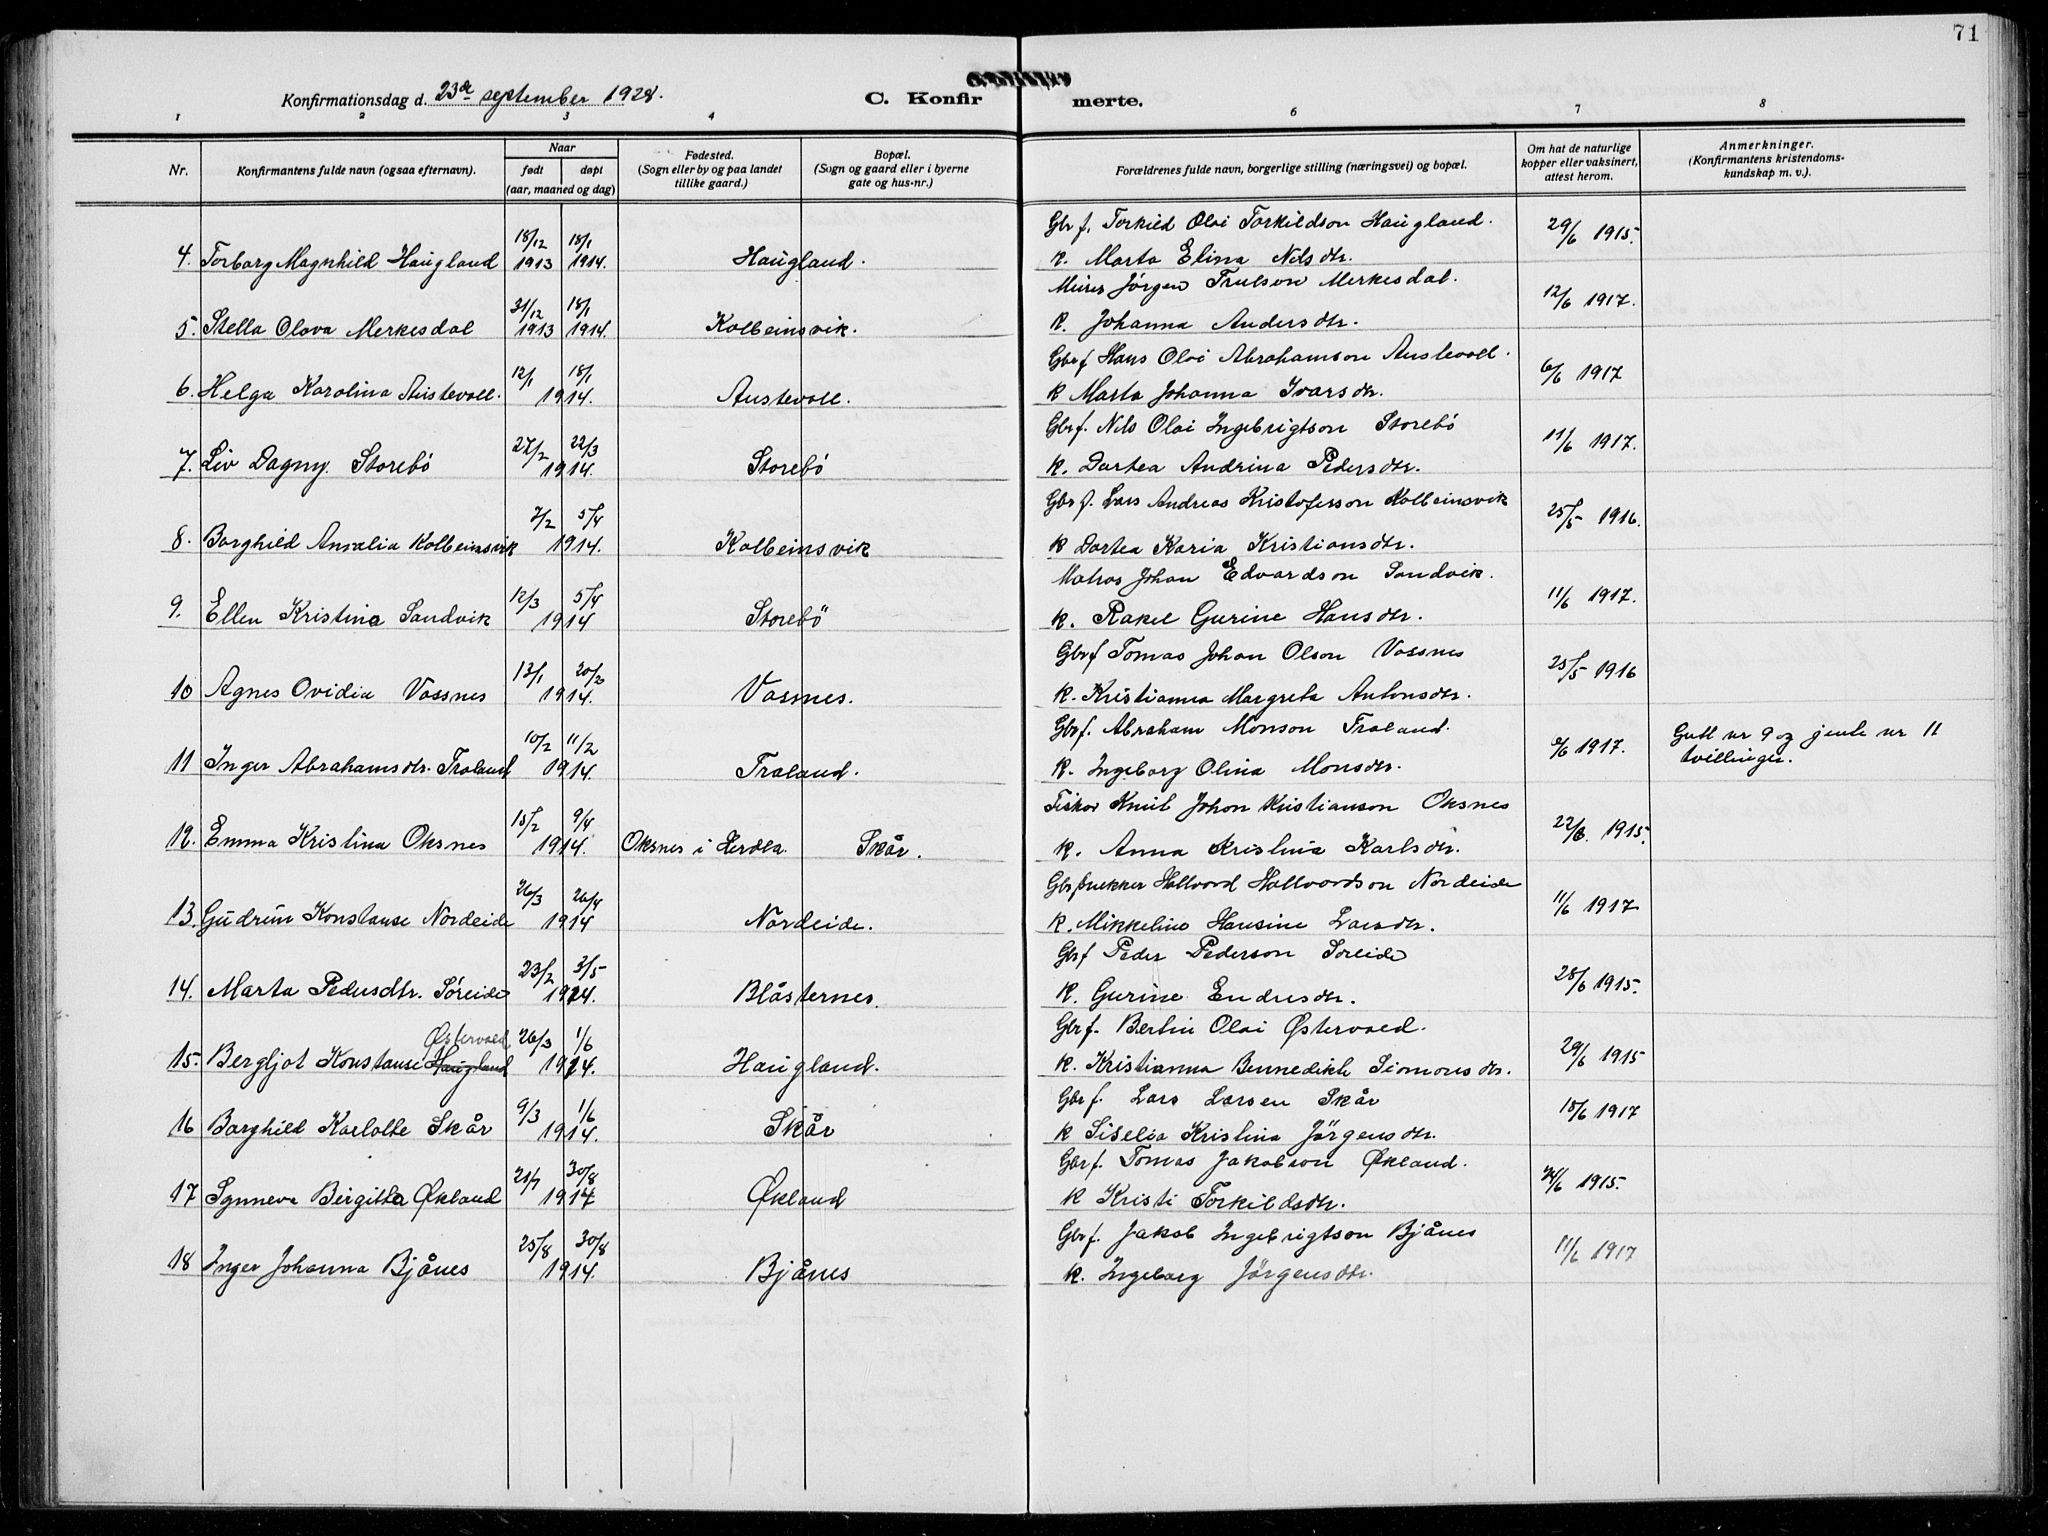 71
Konfirmationsdag d. 23de september 1928.
C. Konfirmerte.
1 2 3 4 6 7 8
Nr. Konfirmantens fulde navn (ogsaa efternavn). Naar født døpt (aar, maaned og dag) Fødested. (Sogn eller by og paa landet tillike gaard.) Bopæl. (Sogn og gaard eller i byerne gate og hus-nr.) Forældrenes fulde navn, borgerlige stilling (næringsvei) og bopæl. Om hat de naturlige kopper eller vaksinert, attest herom. Anmerkninger. (Konfirmantens kristendomskundskap m. v.).
18/12 18/1 Gbrf. Torkild Olai Torkildson Haugland. 29/6 1915.
4. Torborg Magnhild Haugland 1913 1914. Haugland. K. Marta Elina Nilsdtr.
31/12 18/1 Meirer Jørgen Trulson Merkesdal. 12/6 1917.
5. Stella Olava Merkesdal 1913 1914. Kolbeinsvik. K. Johanna Andersdtr.
12/1 18/1 Gbrf Hans Olai Abrahamson Austevoll. 6/6 1917
6. Helga Karolina Austevoll. 1914. Austevoll. K Marta Johanna Ivarsdtr.
27/2 22/3 Gbrf. Nils Olai Ingebrigtson Storebø 11/6 1917.
7. Liv Dagny. Storebø 1914. Storebø K. Dortea Andrina Pedersdtr.
7/2 5/4 Gbrf. Lars Andreas Kristoferson Kolbeinsvik 25/5 1916.
8. Borghild Amalia Kolbeinsvik 1914. Kolbeinsvik K Dortea Karia Kristiansdtr.
12/3 5/4 Matros Johan Edvardson Sandvik. 11/6 1917.
9. Ellen Kristina Sandvik 1914 Storebö K. Rakel Gurine Hansdtr.
13/1 20/2 Gbrf Tomas Johan Olson Vassnes 25/5 1916
10 Agnes Ovidia Vassnes 1914. Vasnes. K. Kristianna Margreta Antonsdtr.
10/2 11/2 Gbrf. Abraham Monson Fraland. 1917. Gutt nr 9 og jente nr 11
11 Inger Abrahamsdtr. Fraland 1914. Fraland. K. Ingeborg Olina Monsdtr. tvillinger.
15/2 9/4 Fisker Knut Johan Kristianson Oksnes 22/6. 1915.
12. Emma Kristina Oksnes 1914. Oksnes i Herdla Skår. K. Anna Kristina Karlsdtr.
26/3 26/4 Gbrfbrukker Hallvard Hallvardson Nordeide 11/6 1917
13. Gudrun Konstanse Nordeide 1914 Nordeide. K. Mikkeline Hansine Larsdtr.
23/2 3/5 Gbrf Peder Pederson Søreide 28/6 1915.
14. Marta Pedersdtr. Søreide 1914. Blåsternes. K. Gurine Endresdtr.
Østervold 26/3 1/6 Gbrf. Bertin Olai Østervold. 29/6 1915
15. Bergljot Konstanse Haugland 1914. Haugland. K. Kristianna Bennedikte Simonsdtr.
9/3 1/6 Gbrf. Lars Larsen Skår 15/6 1917
16 Borghild Karlotte Skår 1914. Skår K Siselia Kristina Jörgensdtr.
21/7 30/8 Gbrf. Tomas Jakobson Økland. 24/6 1915.
17 Synneva Birgitta Økland 1914 Økland K Kristi Torkildsdtr.
25/8 30/8 Gbrf. Jakob Ingebrigtson Bjånes 11/6 1917
18 Inger Johanna Bjånes 1914. Bjånes K. Ingeborg Jörgensdtr.